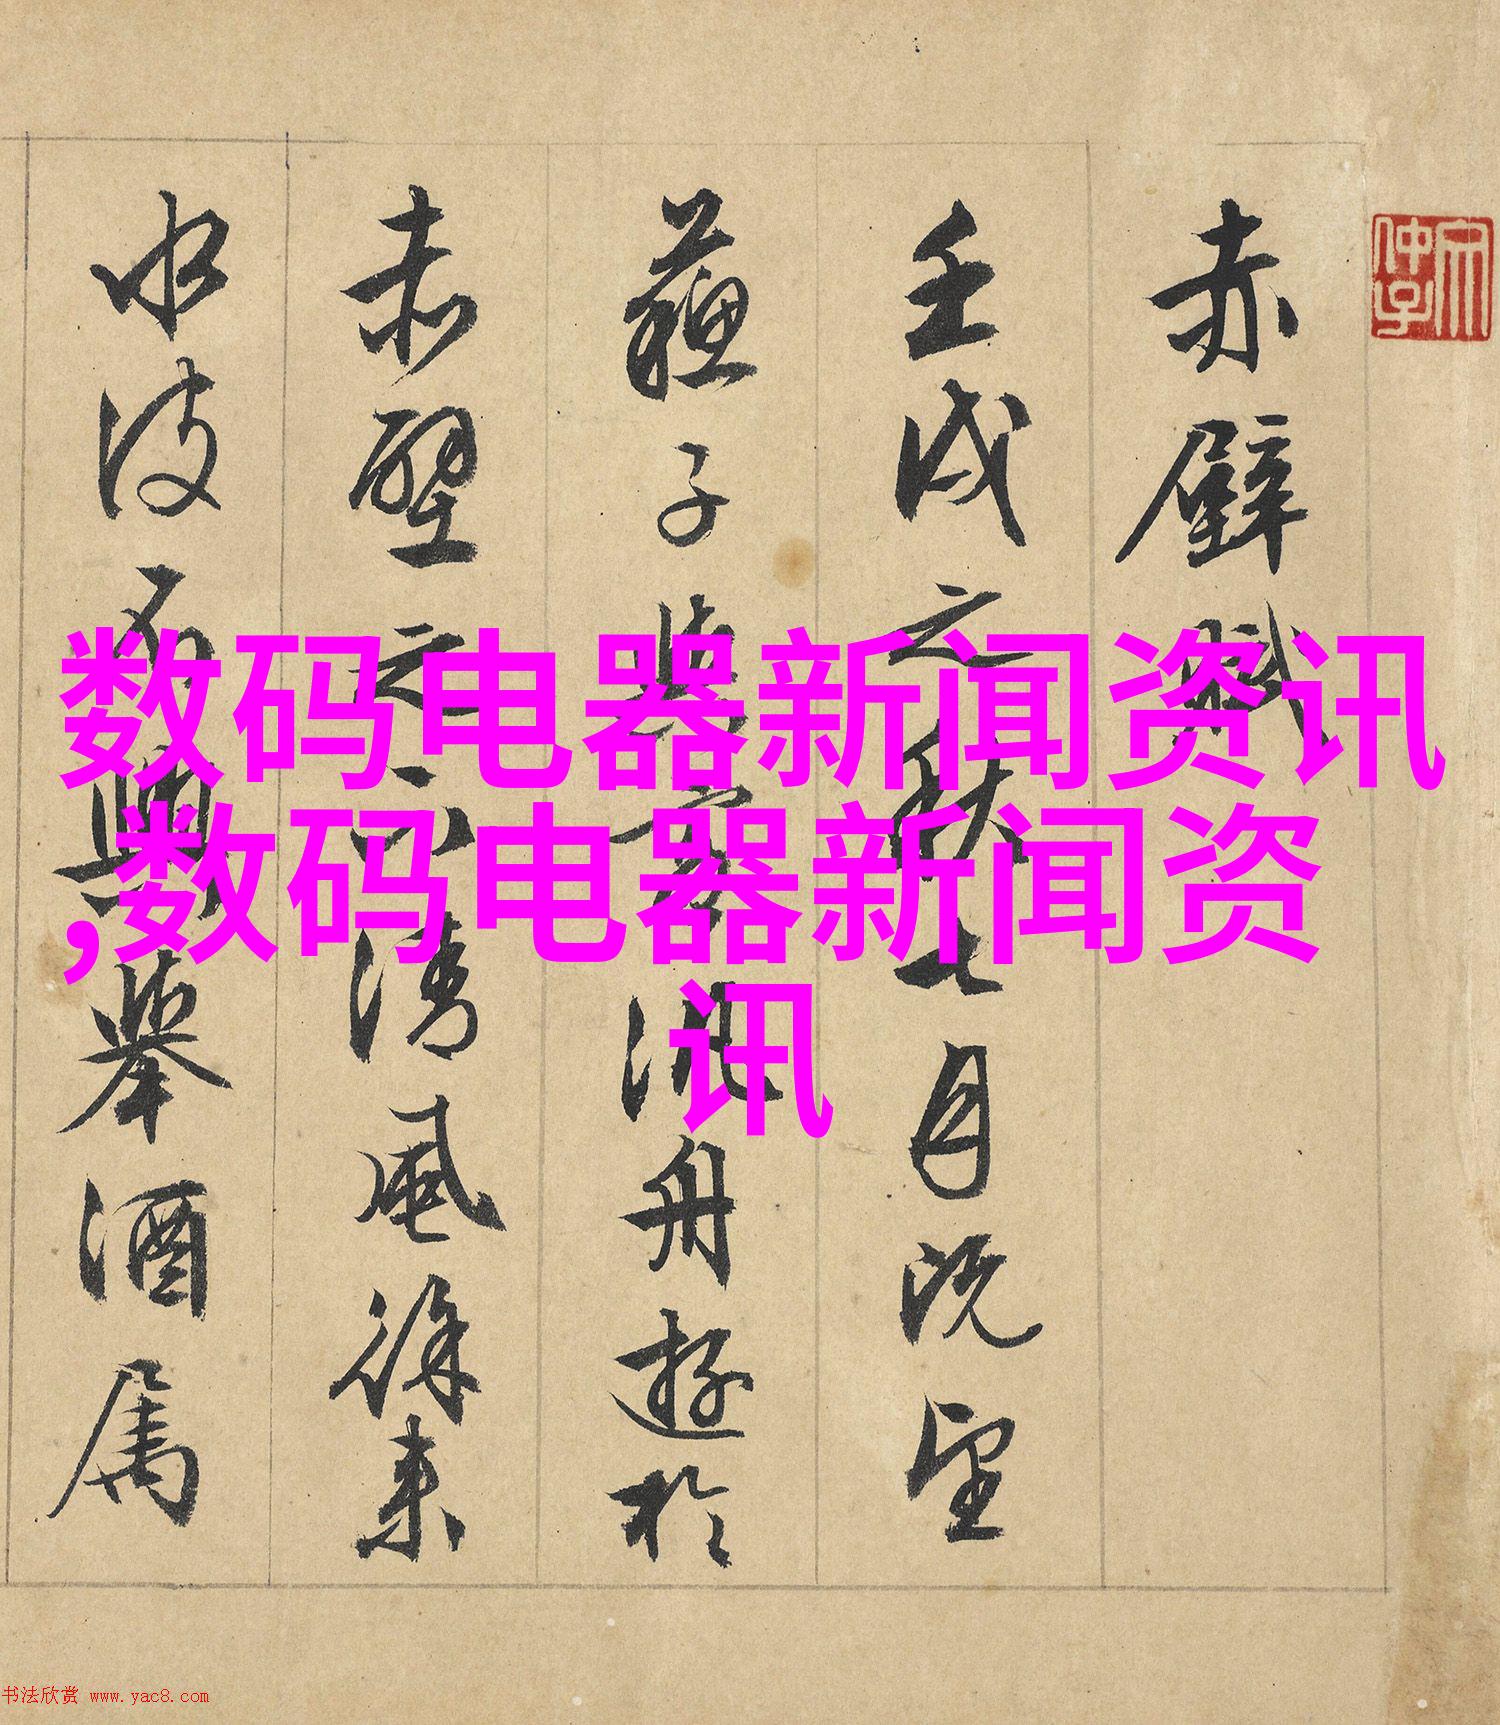 赤壁賦
壬戌之秋七月既望
蘇子與客泛舟遊於
赤壁之下清風徐來
水波不興舉酒屬
数码电器新闻资讯
,数码电器新闻资
讯
书法欣赏 www.yac8.com